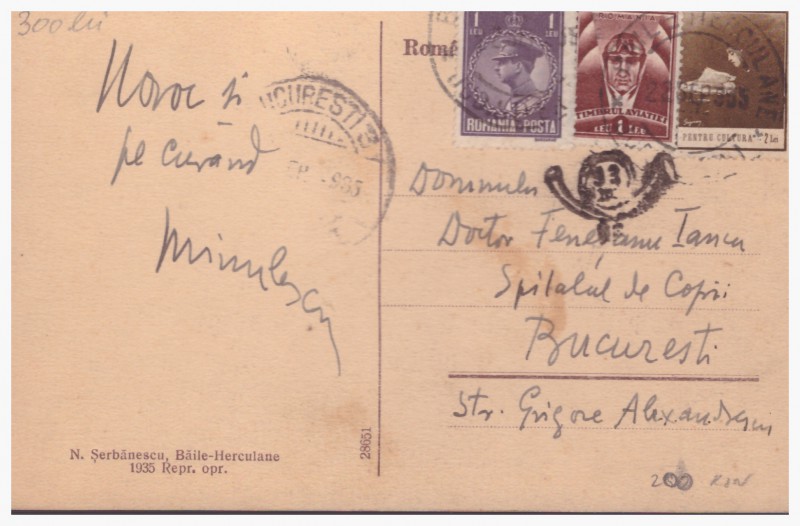 300 lei
1 LEU
1 LEU
ROMANIA POSTA
ROMANIA
TIMBRUL AVIATIEI
LEU 1 LEU
PENTRU CULTURA 2 Lei
HERCULANE
BUCURESTI
Noroc si
pe curând
Minulescu
13
Domnului
Doctor Iancu
Spitalul de Copii
Bucuresti
Str. Grigore Alexandrescu
28651
N. Șerbănescu, Băile-Herculane
1935 Repr. opr.
200 RON